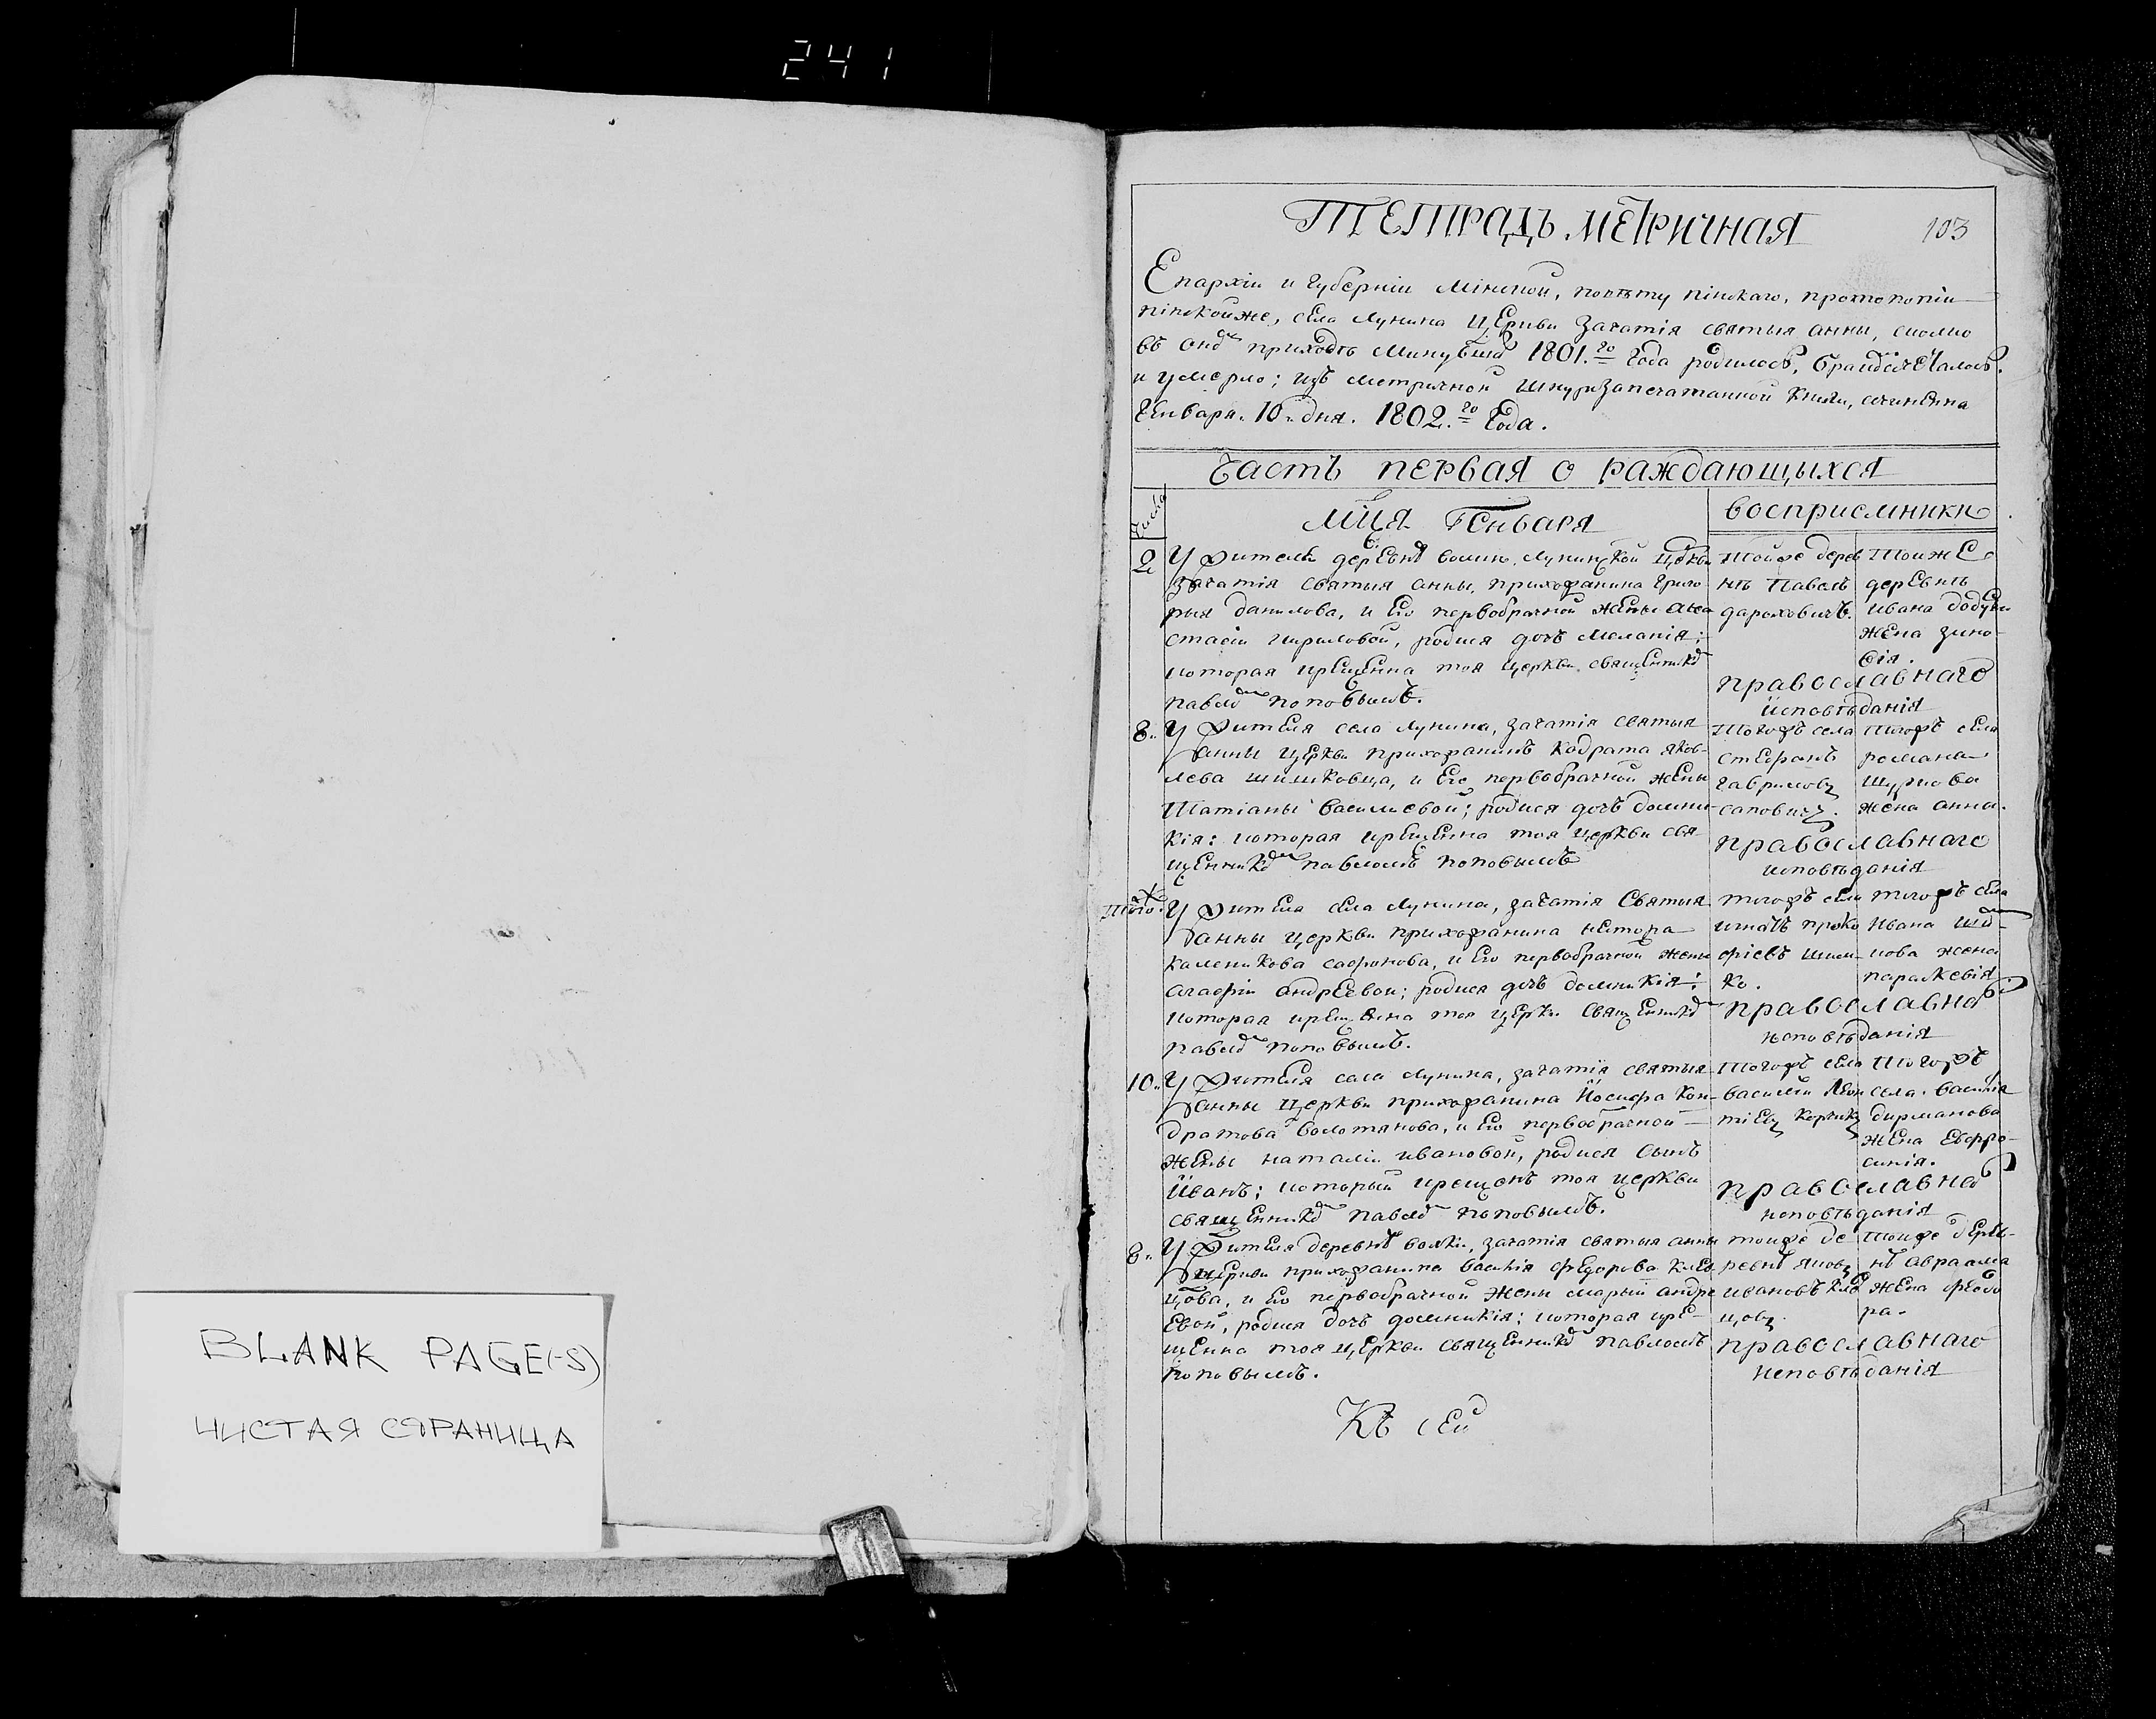 241
BLANK PAGE(-S)
ЧИСТАЯ СТРАНИЦА
ТЕТРАДЬ МЕТРИЧНАЯ
103
Епархіи и Губерніи Мінской, повѣту пінскаго, протопопіи
пінскойже, села Лунина Церкви Зачатія святыя анны, сколко
въ приходѣ 1801.го Года родилось,
и умерло; изъ метричной шнурозапечатанной Книги, сочиненна
Генваря. 10. дня. 1802.го Года.
Часть первая о раждающыхся
Числа
Мца Генваря
восприемники
2
У жителя деревнѣ Лунинской Церкви
Зачатія святыя анны, прихожанина григо
рия данилова, и Его первобрачной жены ана
стасіи кириловой, родися дочь меланія;
которая крещенна тоя церкви священником
павлом поповымъ.
Тойже дерев
нѣ Павелъ
дароховичъ.
Тоиже
деревнѣ
ивана
жена зино-
вія.
православнаго
исповѣданія
8.
У жителя села Лунина, зачатія святыя
анны церкви прихожанинѣ Кодрата яков-
лева шишковца, и Его первобрачной жены
Татіаны василиевой; родися дочь домни-
кія: которая крещенна тоя церкви свя-
щенником павломъ поповымъ
Тогожъ села
стефанъ
гавриловъ
саповичъ.
Тогожъ села
романа
жена анна.
православнаго
исповѣданія
того ж
У жителя села Лунина, зачатія Святыя
анны церкви прихожанина нестора
каленикова сафонова, и Его первобрачной жены
агафіи андреевои; родися дочь домникія:
которая крещенна тоя церкви священником
павлом поповымъ.
тогожъ села
игнатъ проко
фіевъ шиш-
ко.
тогожъ села
Ивана
жена
параскевія
православнаго
исповѣданія
10.
У жителя села Лунина, зачатія святыя
анны церкви прихожанина Іосифа Кон-
дратова болотянова, и Его первобрачной
жены наталіи ивановой, родися сынъ
Иванъ; которыи крещенъ тоя церкви
священником павлом поповымъ.
Тогожъ села
василеи Леон
тіевъ
Тогожъ
села. василія
дирманова
жена Евфро-
синія.
православнаго
исповѣданія
8.
У жителя деревнѣ вояки, зачатія святыя анны
церкви прихожанина василія федорова
цова, и Его первобрачной жены маріи андре
евой, родися дочь домникія; которая кре-
щенна тоя церкви священником павломъ
поповымъ.
тоиже де
ревнѣ яковъ
ивановъ
цовъ.
Тоиже дерев-
нѣ авраама
жена феодо
ра.
православнаго
исповѣданія
Къ сей